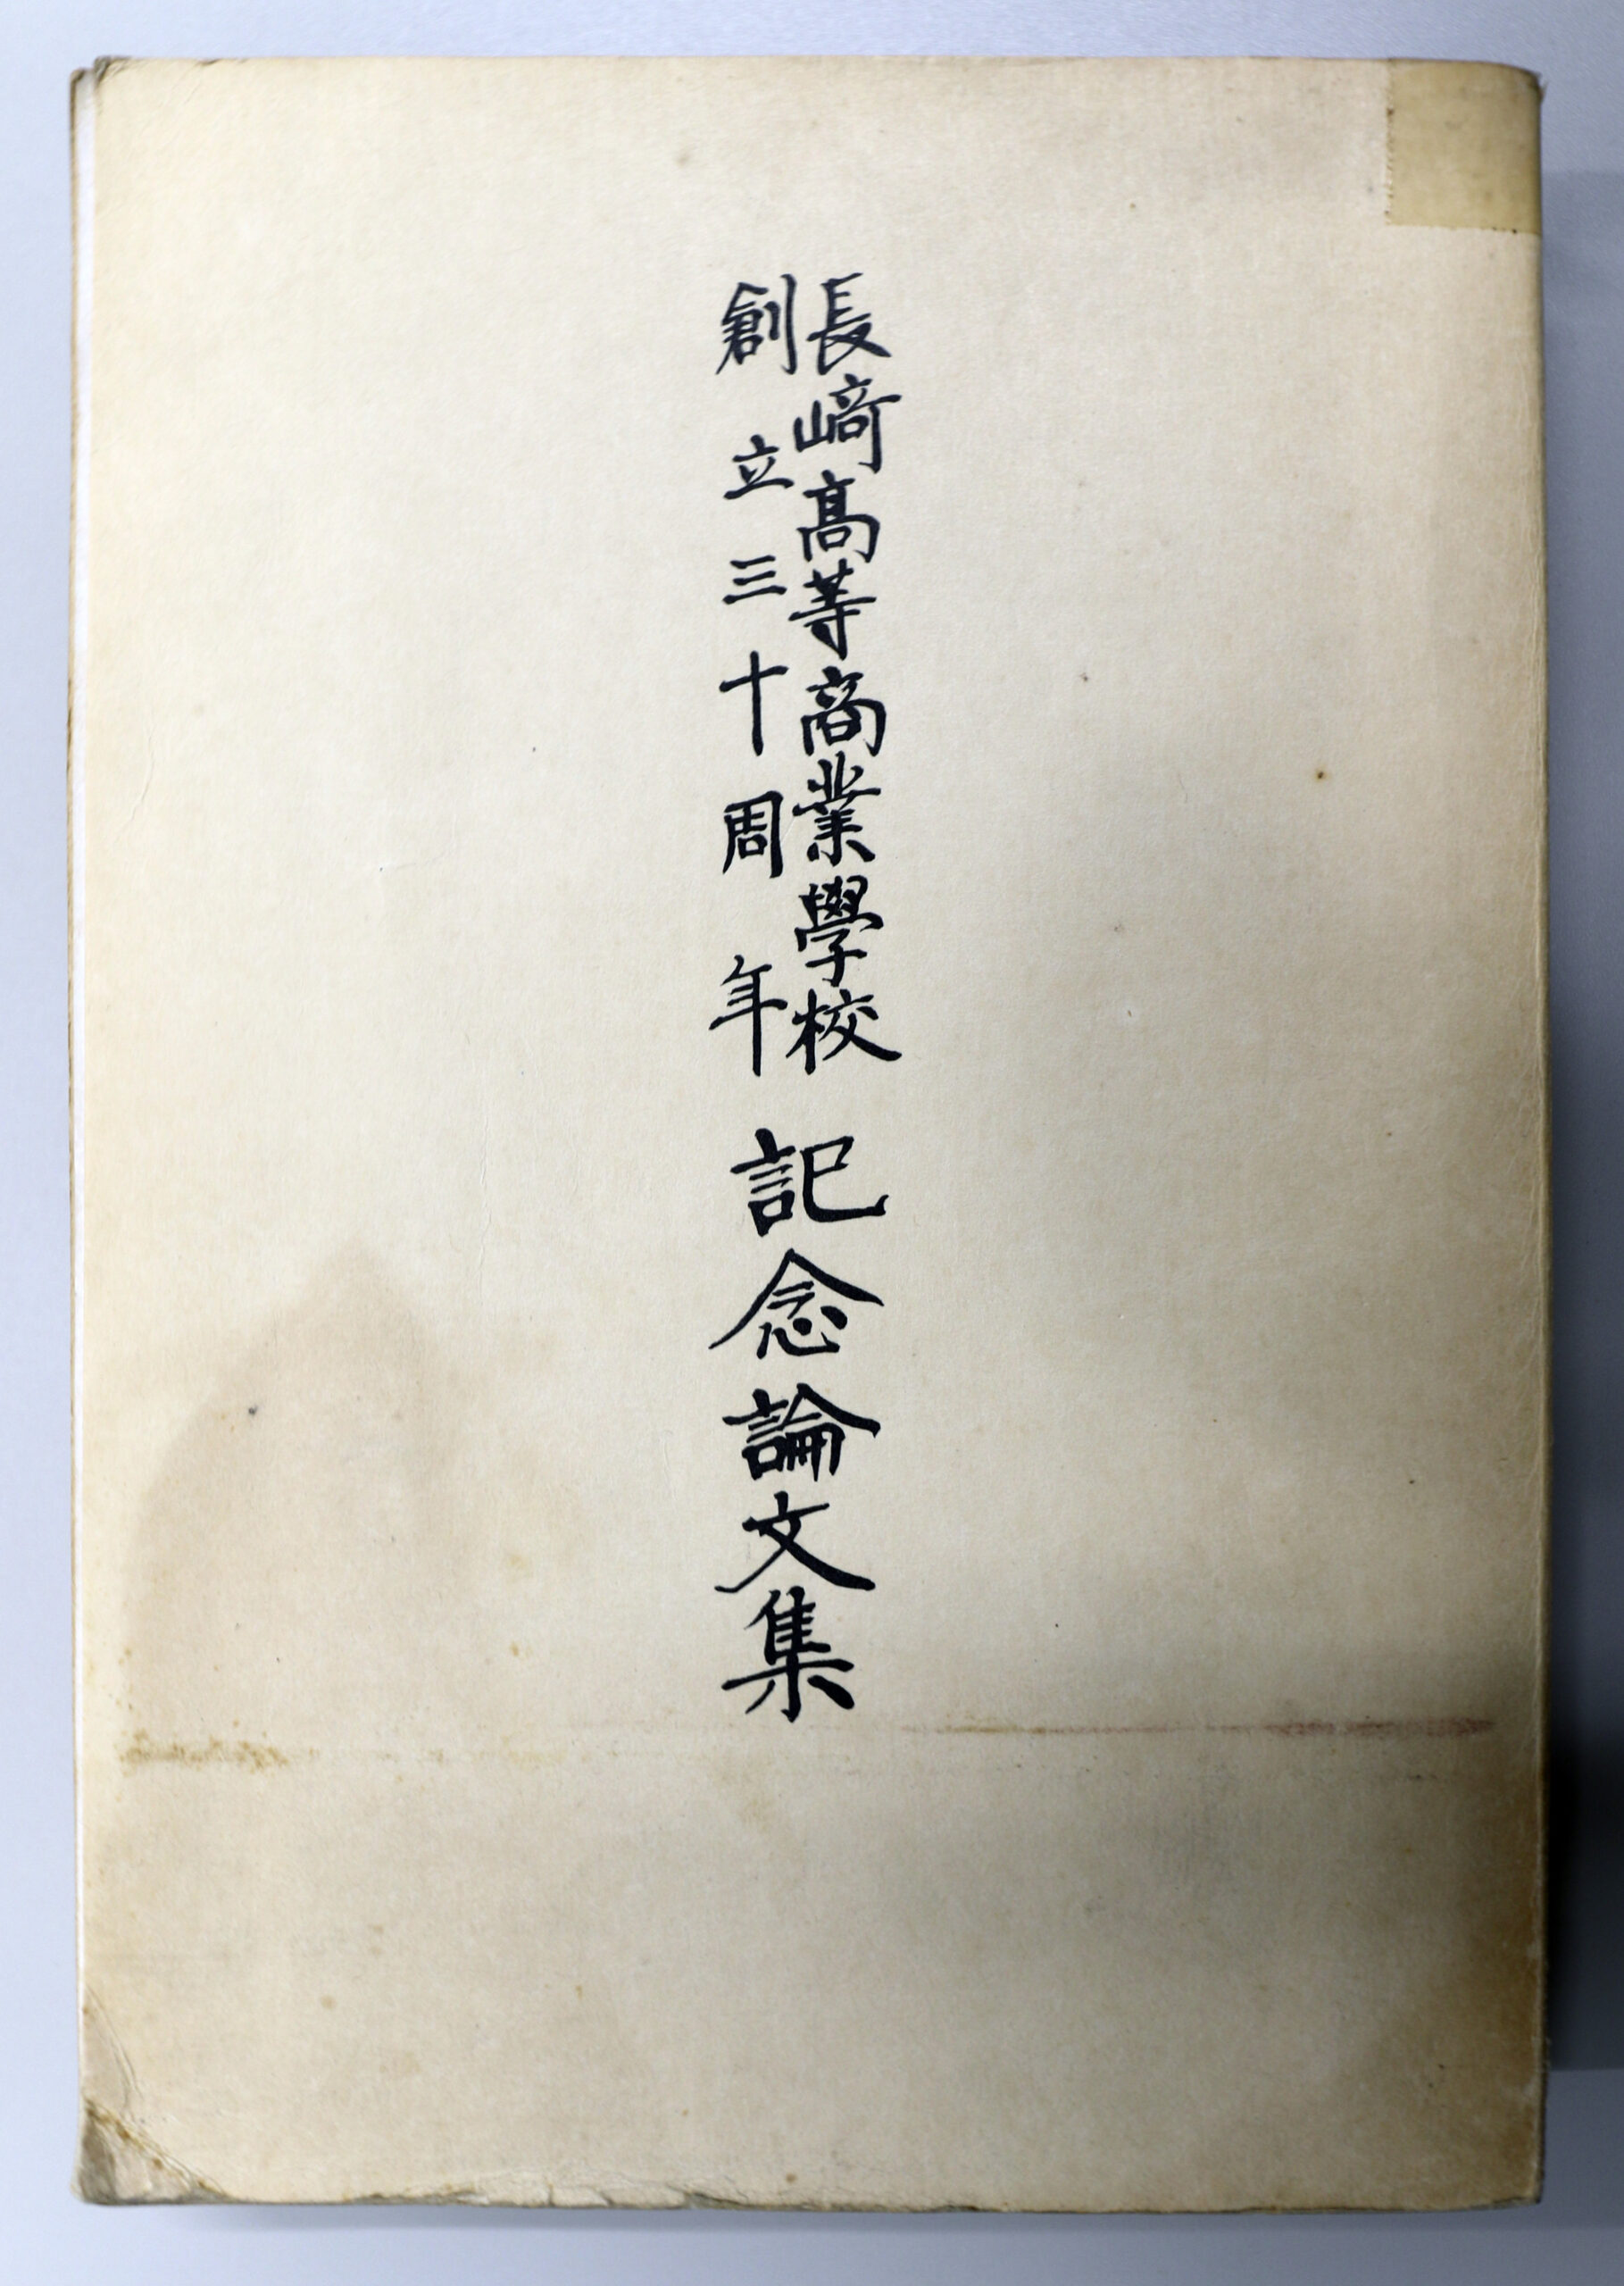 長﨑髙等商業學校
創立三十周年
記念論文集